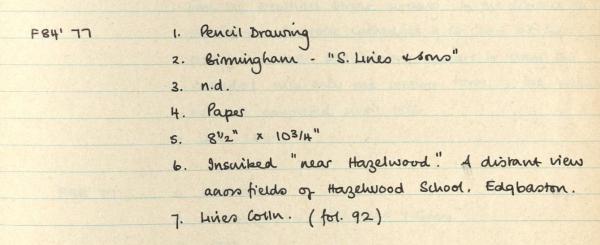 F84' 77 1. Pencil Drawing
2. Birmingham - "S. Lines & Sons"
3. n.d.
4. Paper
5. 8 1/2" x 10 3/4"
6. Inscribed "near Hazelwood". A distant view
across fields of Hazelwood School. Edgbaston.
7. Lines Colln. (fol. 92)